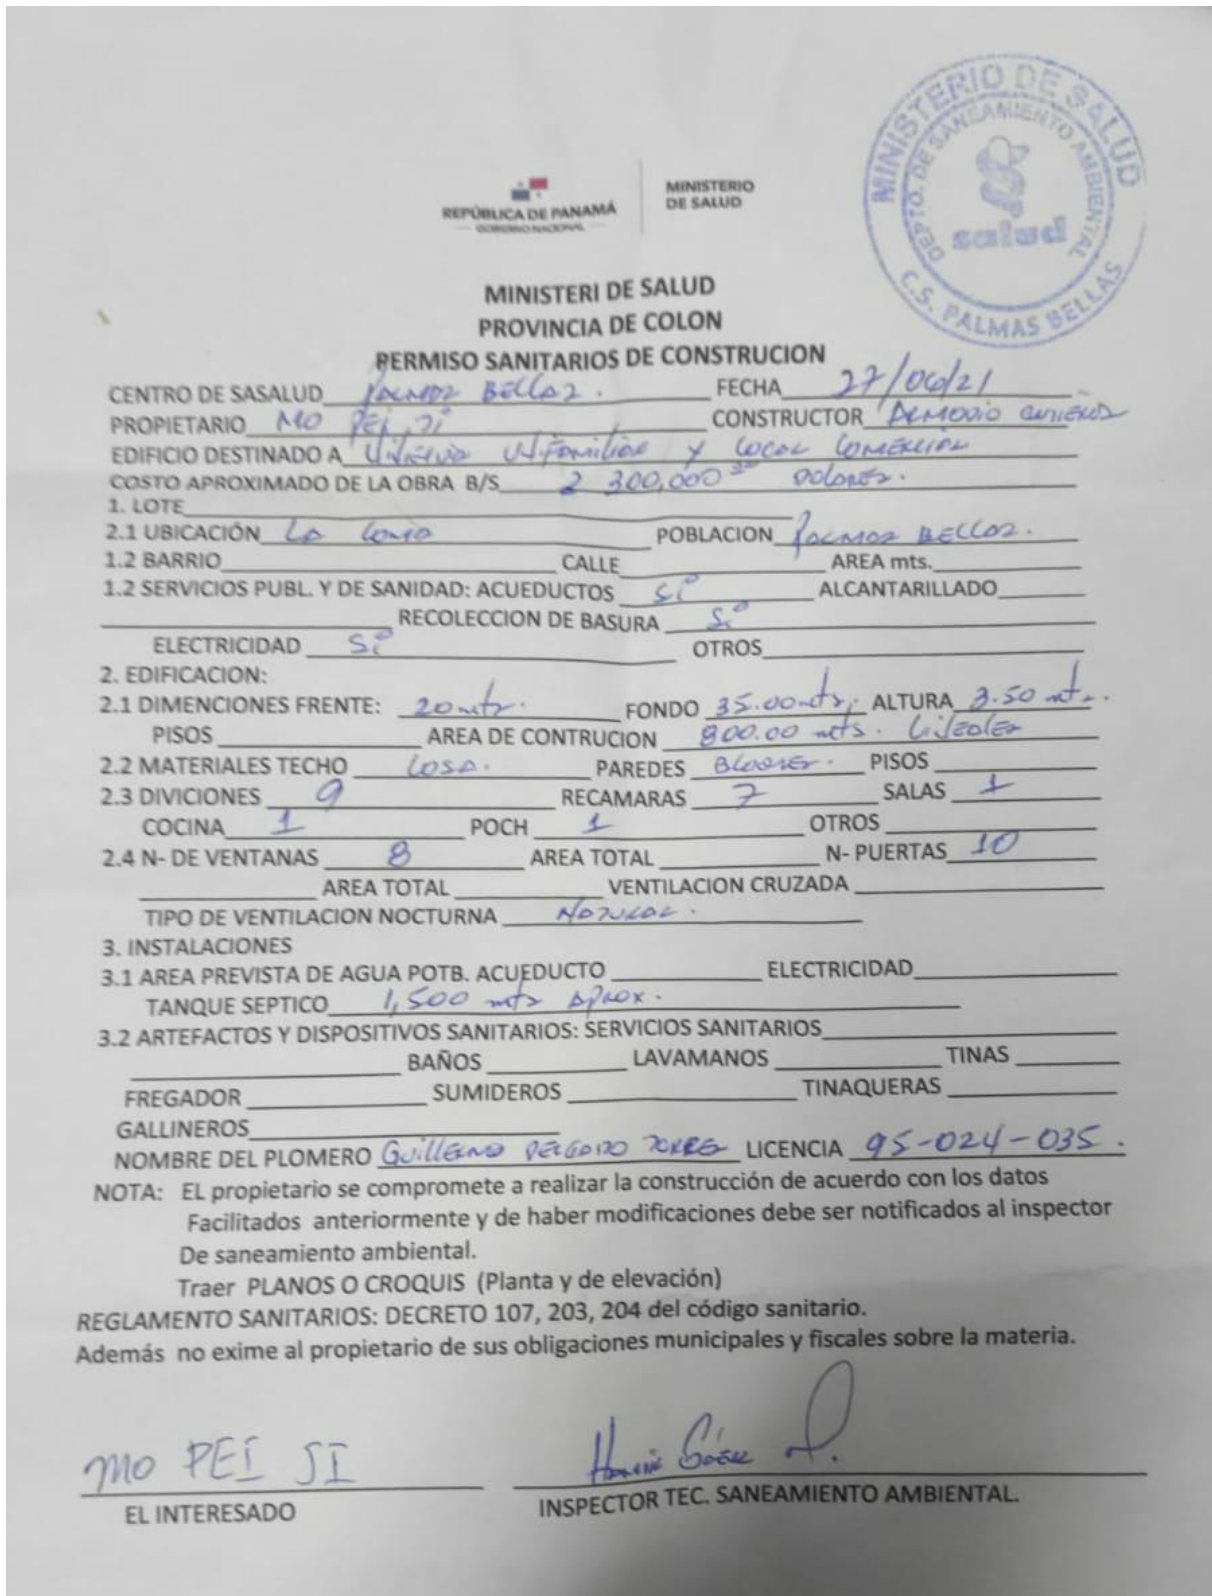 MINISTERIO DE SALUD
DEPTO. DE SANEAMIENTO AMBIENTAL
salud
C.S. PALMAS BELLAS
REPÚBLICA DE PANAMÁ
— GOBIERNO NACIONAL —
MINISTERIO
DE SALUD
MINISTERI DE SALUD
PROVINCIA DE COLON
PERMISO SANITARIOS DE CONSTRUCION
CENTRO DE SASALUD Palmas Bellas. FECHA 27/06/21
PROPIETARIO MO PEI, JI CONSTRUCTOR
EDIFICIO DESTINADO A Unifamiliar y Local Comercial
COSTO APROXIMADO DE LA OBRA B/S 300,000 Dolares.
1. LOTE
2.1 UBICACIÓN La POBLACION Palmas Bellas.
1.2 BARRIO CALLE AREA mts.
1.2 SERVICIOS PUBL. Y DE SANIDAD: ACUEDUCTOS Si ALCANTARILLADO
RECOLECCION DE BASURA Si
ELECTRICIDAD Si OTROS
2. EDIFICACION:
2.1 DIMENCIONES FRENTE: 20 mts. FONDO 35.00 mts. ALTURA 3.50 mts.
PISOS AREA DE CONTRUCION 800.00 mts. Lineales
2.2 MATERIALES TECHO Losa. PAREDES Bloques. PISOS
2.3 DIVICIONES 9 RECAMARAS 7 SALAS 1
COCINA 1 POCH 1 OTROS
2.4 N- DE VENTANAS 8 AREA TOTAL N- PUERTAS 10
AREA TOTAL VENTILACION CRUZADA
TIPO DE VENTILACION NOCTURNA Natural.
3. INSTALACIONES
3.1 AREA PREVISTA DE AGUA POTB. ACUEDUCTO ELECTRICIDAD
TANQUE SEPTICO 1,500 mts Aprox.
3.2 ARTEFACTOS Y DISPOSITIVOS SANITARIOS: SERVICIOS SANITARIOS
BAÑOS LAVAMANOS TINAS
FREGADOR SUMIDEROS TINAQUERAS
GALLINEROS
NOMBRE DEL PLOMERO Guillermo Delgado Torres LICENCIA 95-024-035.
NOTA: EL propietario se compromete a realizar la construcción de acuerdo con los datos
Facilitados anteriormente y de haber modificaciones debe ser notificados al inspector
De saneamiento ambiental.
Traer PLANOS O CROQUIS (Planta y de elevación)
REGLAMENTO SANITARIOS: DECRETO 107, 203, 204 del código sanitario.
Además no exime al propietario de sus obligaciones municipales y fiscales sobre la materia.
MO PEI JI
EL INTERESADO
INSPECTOR TEC. SANEAMIENTO AMBIENTAL.